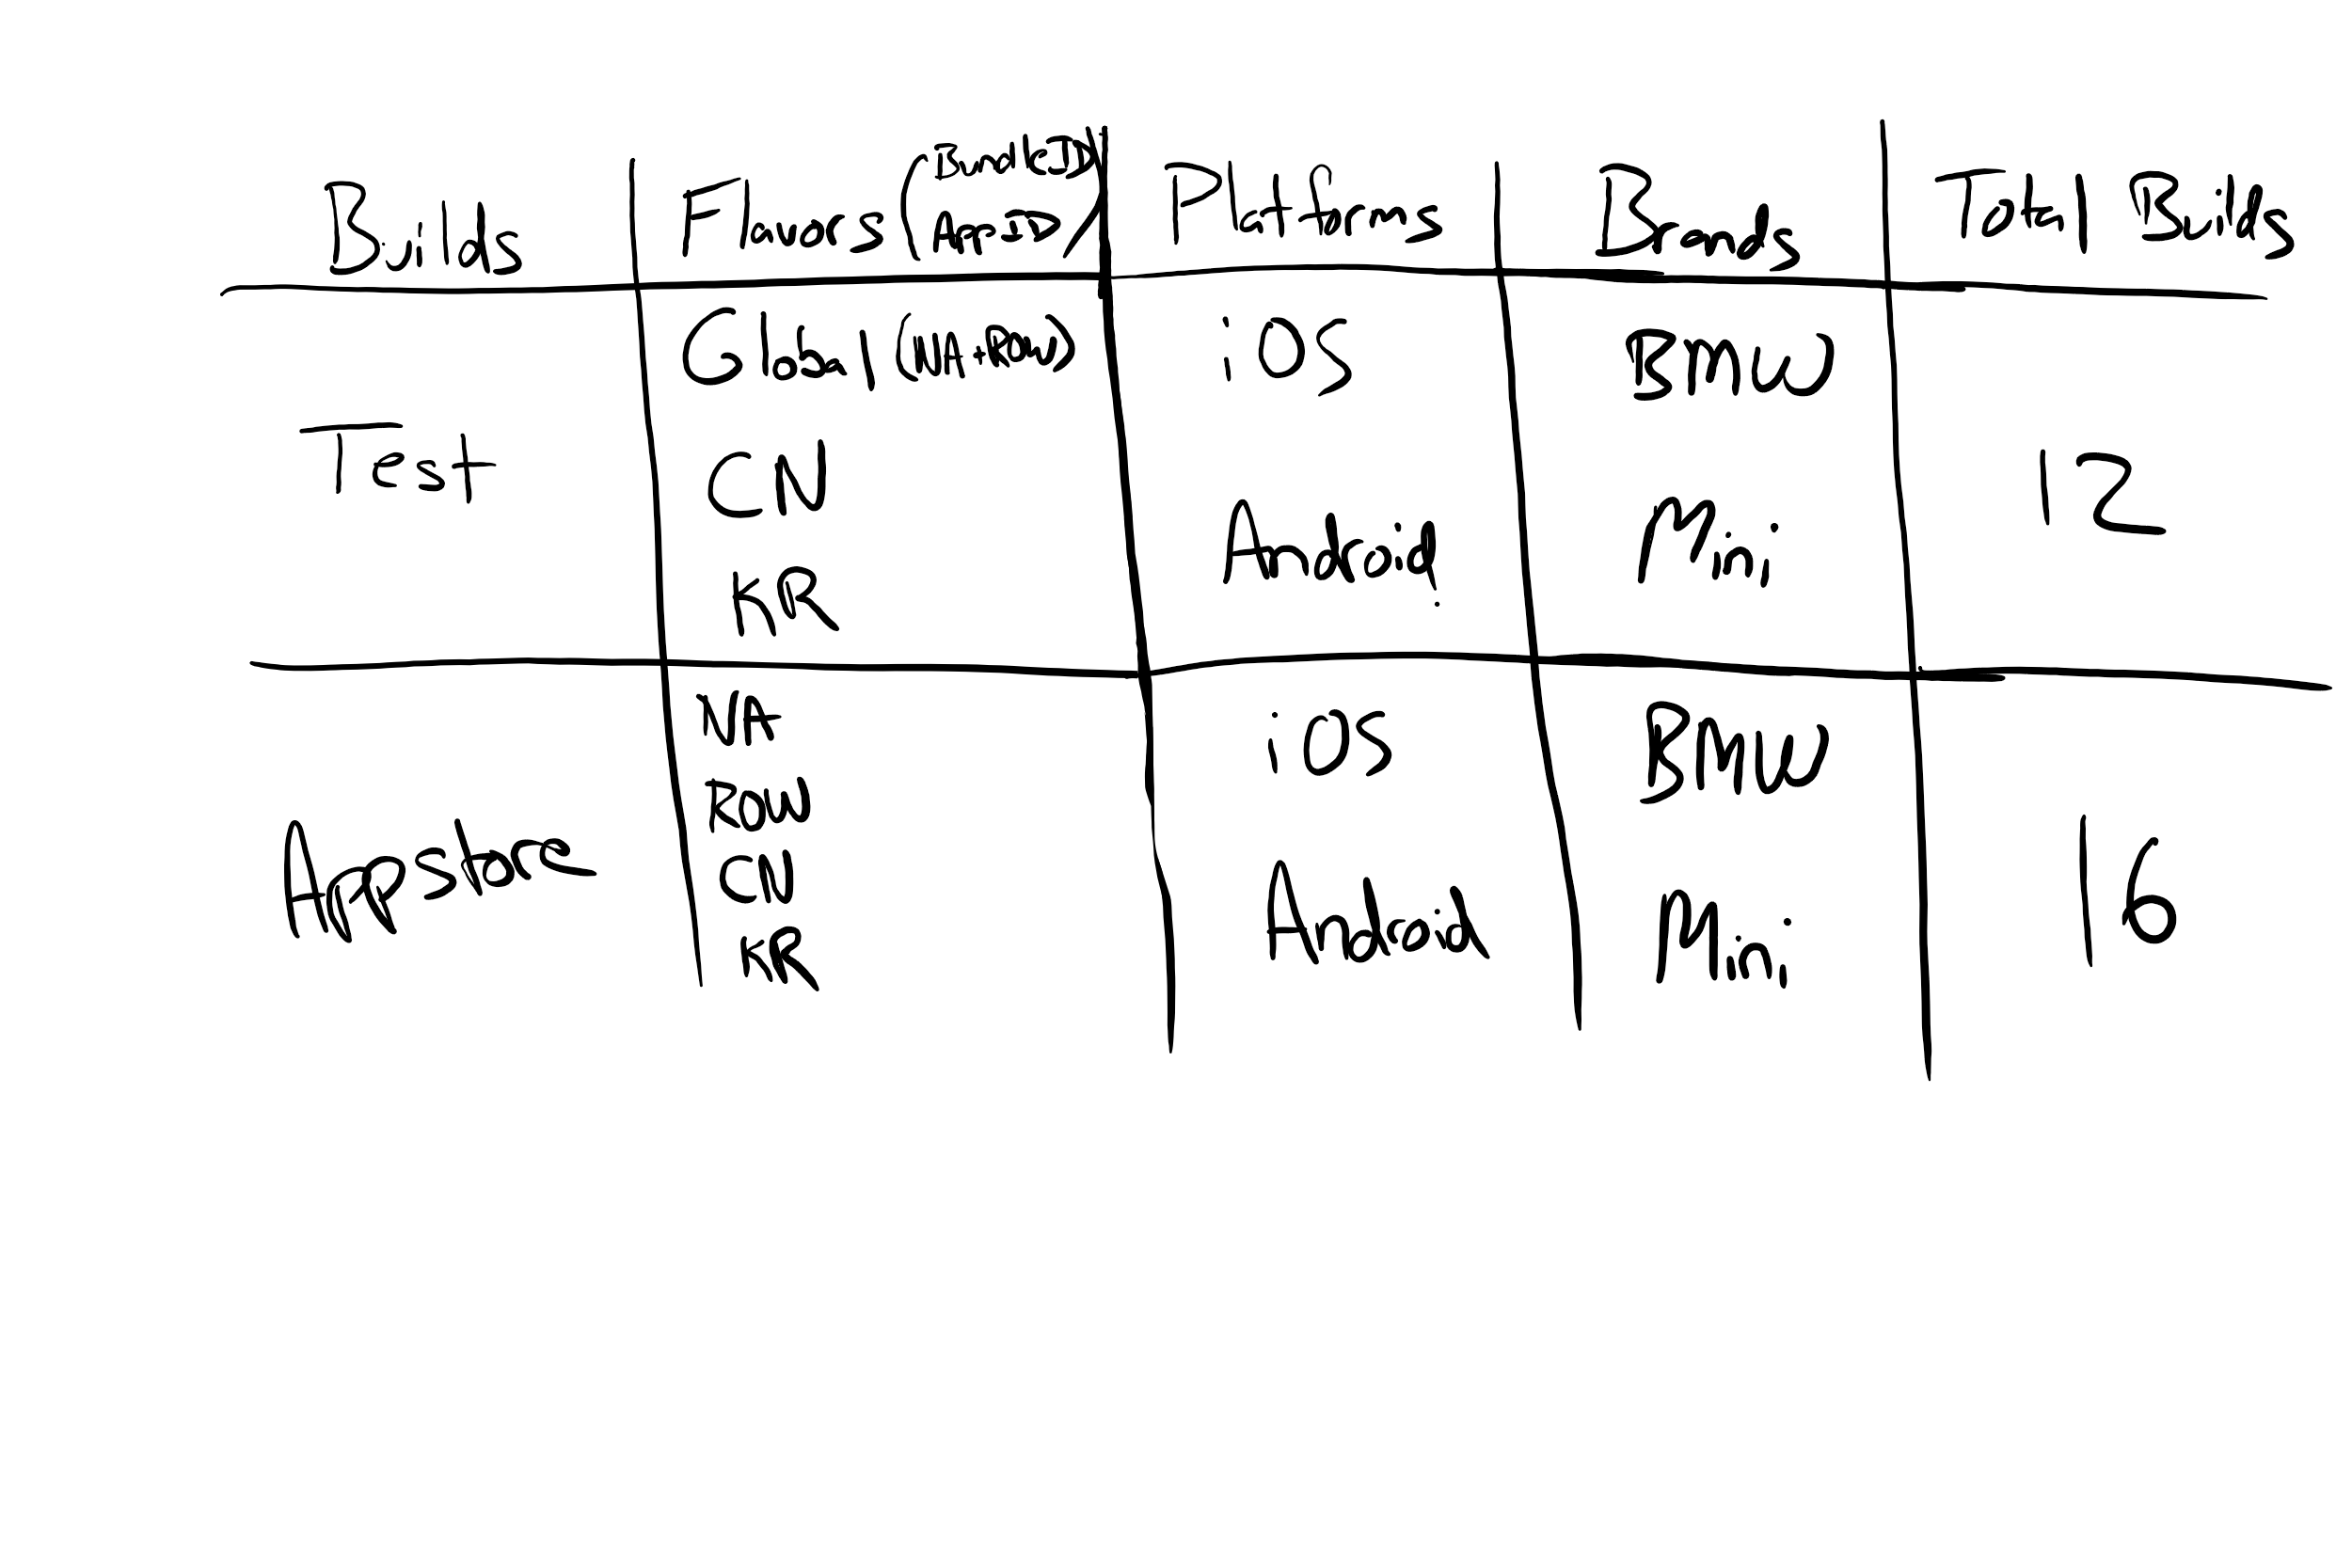 Builds Flavors (BundleID/AppID) Platforms Brands Total Builds
Test
Global (NA+ROW)
CN
KR
iOS
Android
BMW
Mini
12
Appstore
NA
ROW
CN
KR
iOS
Android
BMW
Mini
16